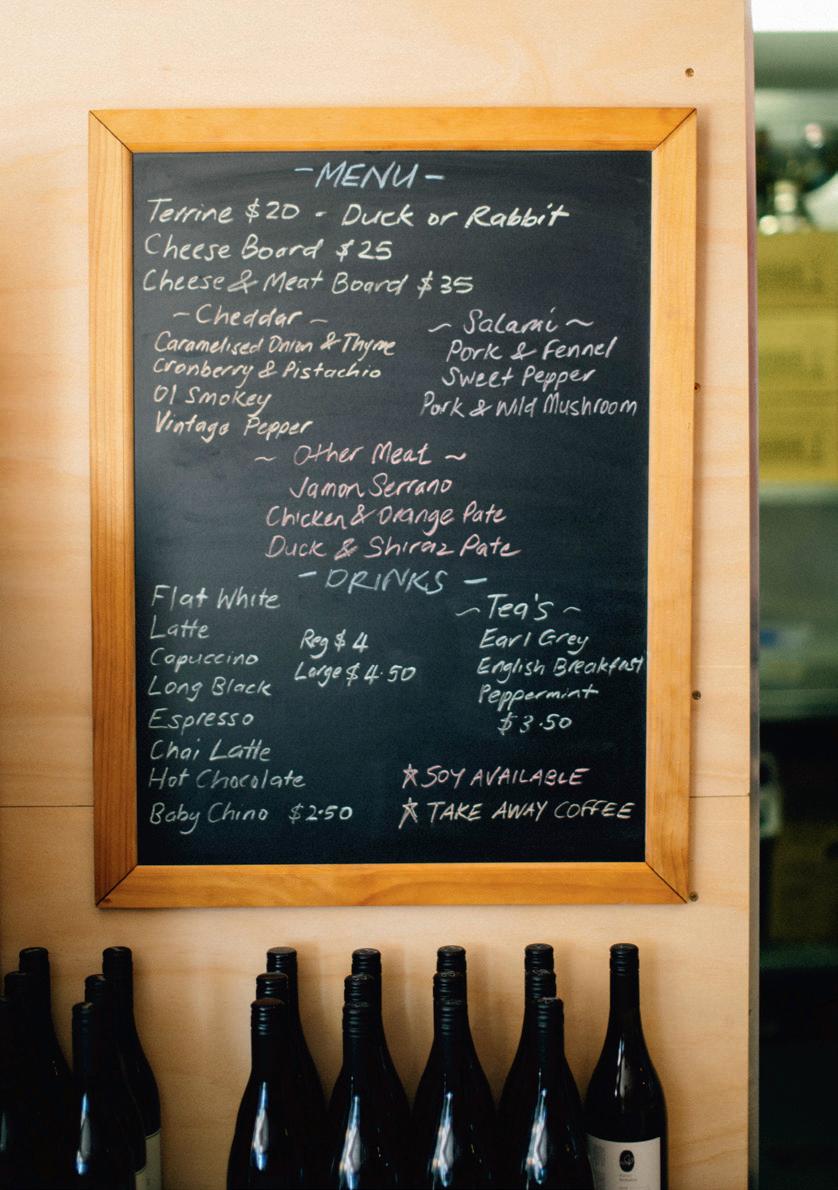 -MENU-
Terrine $20 - Duck or Rabbit
Cheese Board $25
Cheese & Meat Board $35
~Cheddar~
Caramelised Onion & Thyme
Cranberry & Pistachio
Ol Smokey
Vintage Pepper
~ Salami ~
Pork & Fennel
Sweet Pepper
Pork & Wild Mushroom
~ Other Meat ~
Jamon Serrano
Chicken & Orange Pate
Duck & Shiraz Pate
-DRINKS-
Flat White
Latte
Capuccino
Long Black
Espresso
Chai Latte
Hot Chocolate
Baby Chino $2.50
Reg $4
Large $4.50
~Tea's~
Earl Grey
English Breakfast
Peppermint
$3.50
☆ SOY AVAILABLE
☆ TAKE AWAY COFFEE